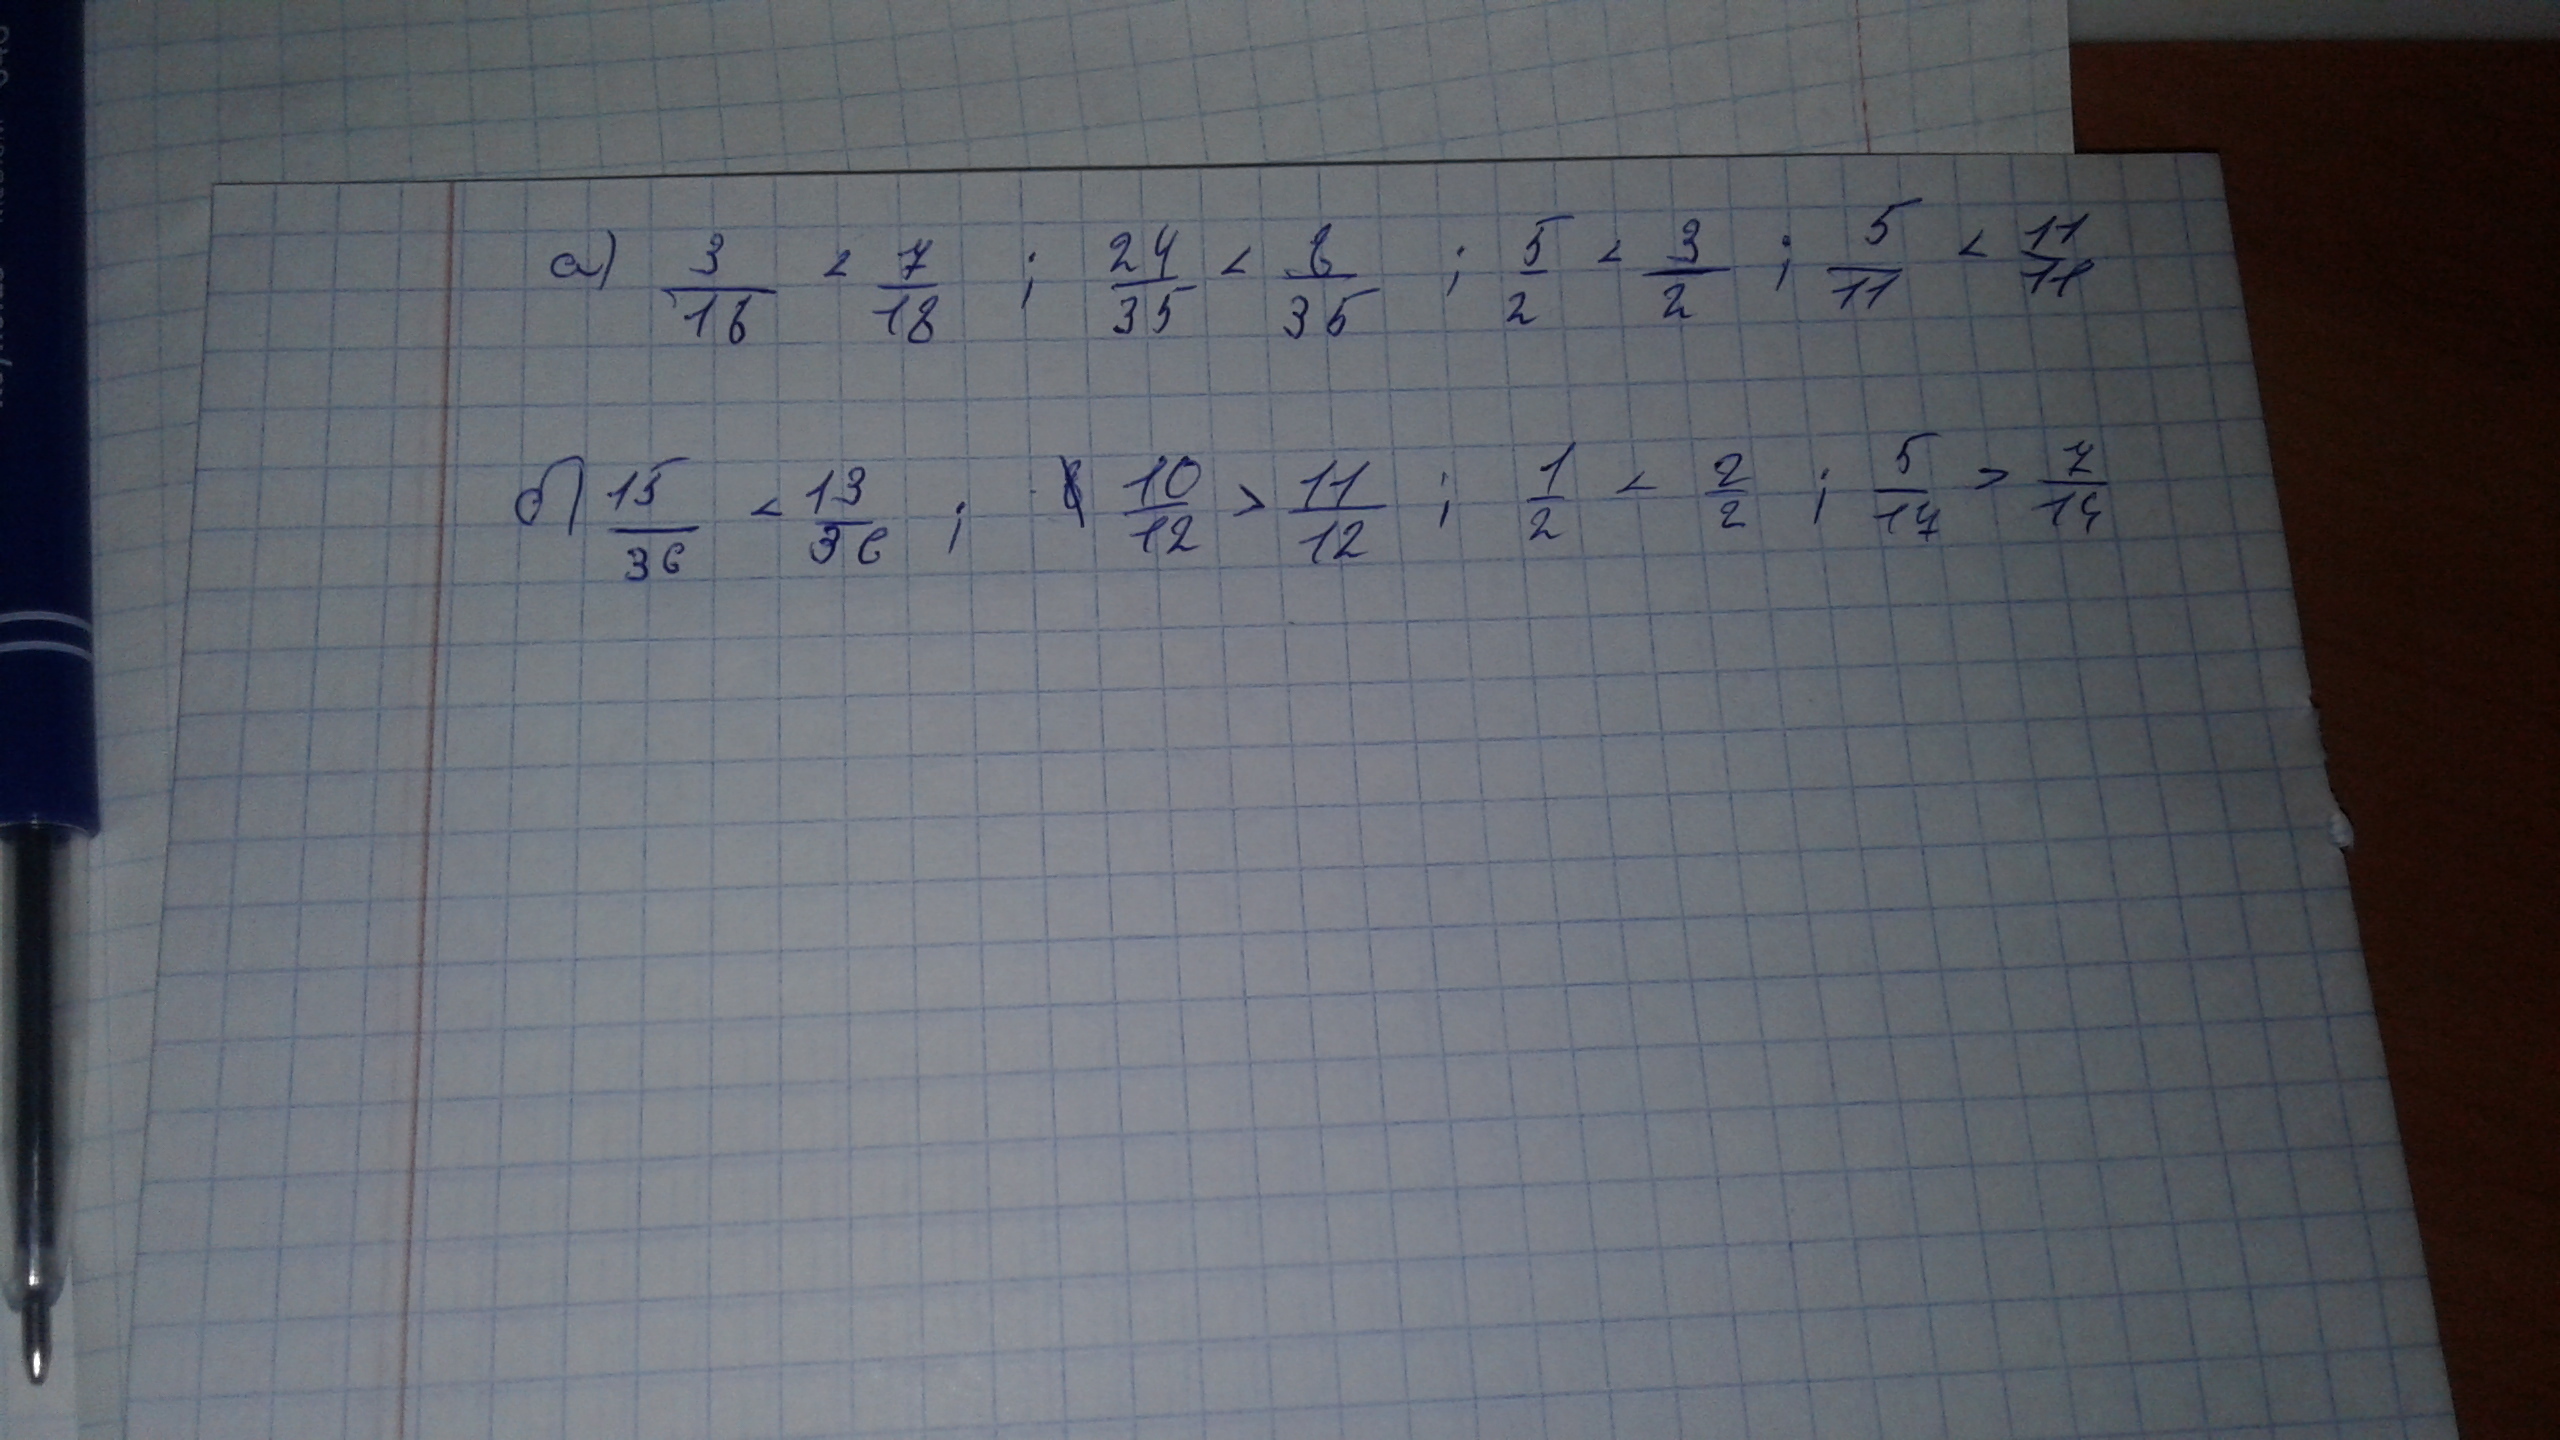 а) 3/18 < 7/18 ; 24/35 < 8/35 ; 5/2 < 3/2 ; 5/11 < 11/11
б) 15/36 < 13/36 ; 10/12 > 11/12 ; 1/2 < 2/2 ; 5/14 > 7/14